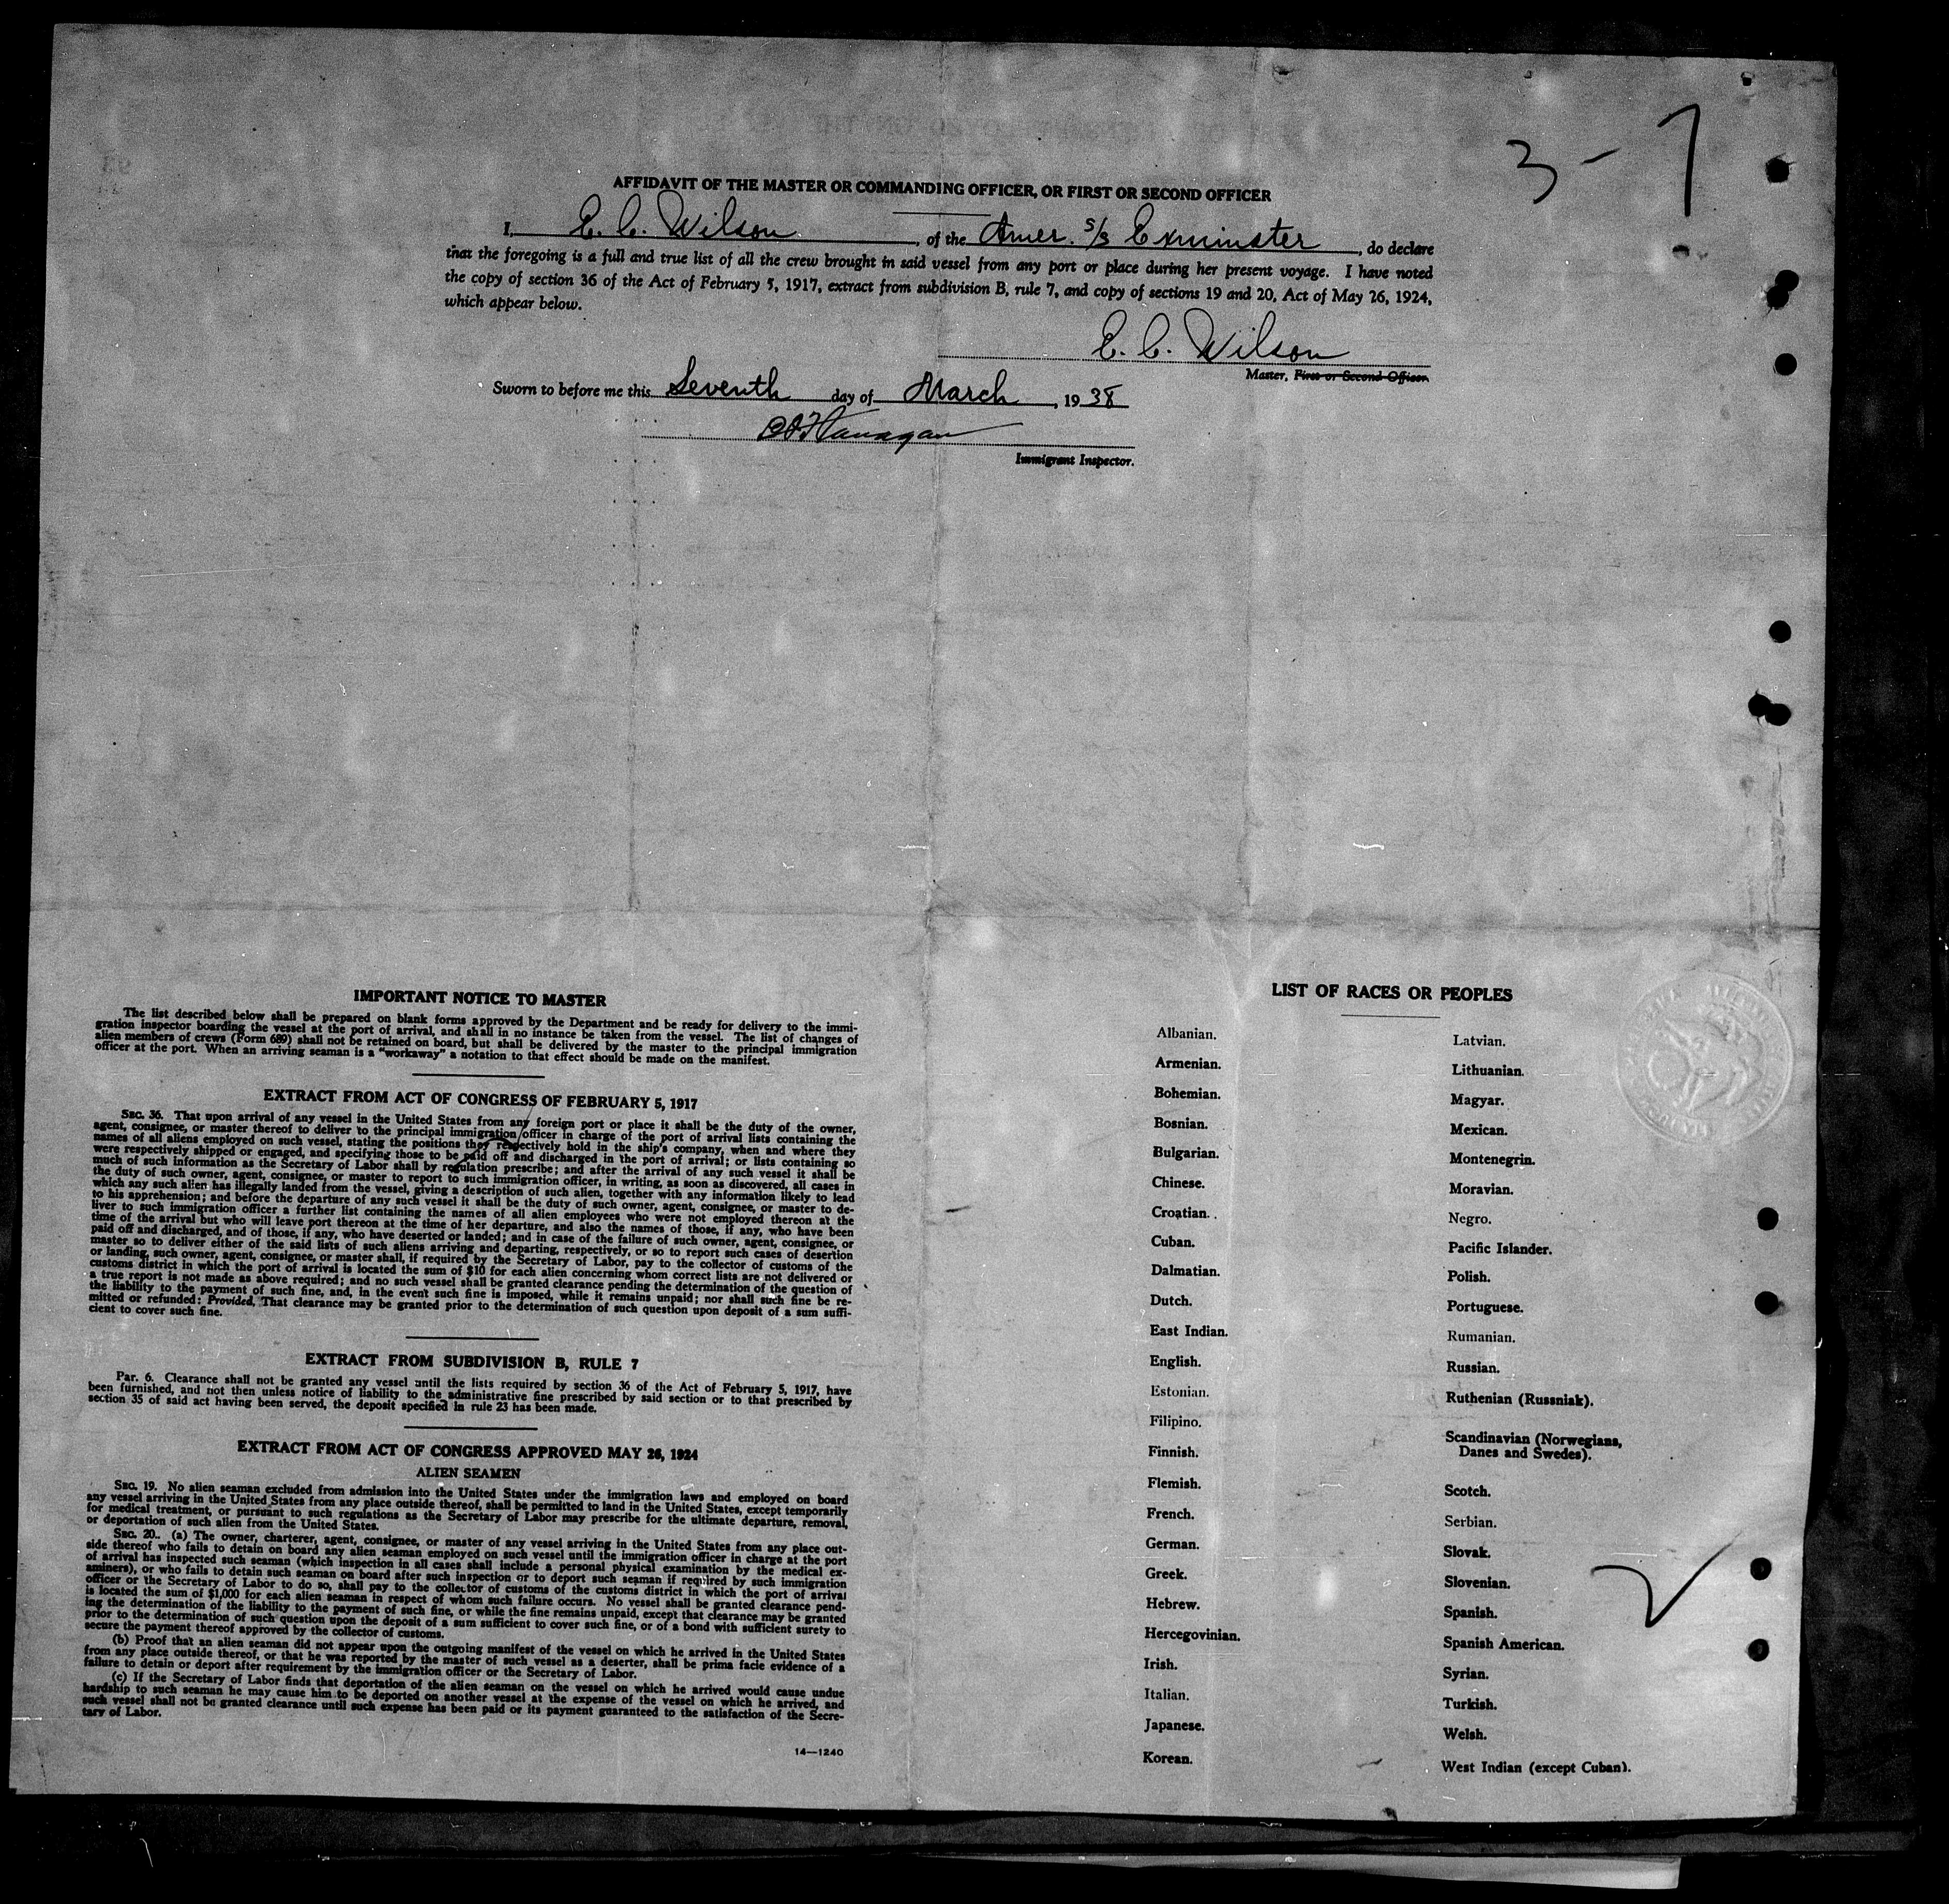 3-7
AFFIDAVIT OF THE MASTER OR COMMANDING OFFICER, OR FIRST OR SECOND OFFICER
I, E. C. Wilson, of the Amer. S/S Exminster, do declare
that the foregoing is a full and true list of all the crew brought in said vessel from any port or place during her present voyage. I have noted
the copy of section 36 of the Act of February 5, 1917, extract from subdivision B, rule 7, and copy of sections 19 and 20, Act of May 26, 1924,
which appear below.
E. C. Wilson
Master, First or Second Officer.
Sworn to before me this Seventh day of March, 1938
Flanagan
Immigrant Inspector.
IMPORTANT NOTICE TO MASTER
The list described below shall be prepared on blank forms approved by the Department and be ready for delivery to the immi-
gration inspector boarding the vessel at the port of arrival, and shall in no instance be taken from the vessel. The list of changes of
alien members of crews (Form 689) shall not be retained on board, but shall be delivered by the master to the principal immigration
officer at the port. When an arriving seaman is a "workaway" a notation to that effect should be made on the manifest.
EXTRACT FROM ACT OF CONGRESS OF FEBRUARY 5, 1917
SEC. 36. That upon arrival of any vessel in the United States from any foreign port or place it shall be the duty of the owner,
agent, consignee, or master thereof to deliver to the principal immigration officer in charge of the port of arrival lists containing the
names of all aliens employed on such vessel, stating the positions they respectively hold in the ship's company, when and where they
were respectively shipped or engaged, and specifying those to be paid off and discharged in the port of arrival; or lists containing so
much of such information as the Secretary of Labor shall by regulation prescribe; and after the arrival of any such vessel it shall be
the duty of such owner, agent, consignee, or master to report to such immigration officer, in writing, as soon as discovered, all cases in
which any such alien has illegally landed from the vessel, giving a description of such alien, together with any information likely to lead
to his apprehension; and before the departure of any such vessel it shall be the duty of such owner, agent, consignee, or master to de-
liver to such immigration officer a further list containing the names of all alien employees who were not employed thereon at the
time of the arrival but who will leave port thereon at the time of her departure, and also the names of those, if any, who have been
paid off and discharged, and of those, if any, who have deserted or landed; and in case of the failure of such owner, agent, consignee, or
master so to deliver either of the said lists of such aliens arriving and departing, respectively, or so to report such cases of desertion
or landing, such owner, agent, consignee, or master shall, if required by the Secretary of Labor, pay to the collector of customs of the
customs district in which the port of arrival is located the sum of $10 for each alien concerning whom correct lists are not delivered or
a true report is not made as above required; and no such vessel shall be granted clearance pending the determination of the question of
the liability to the payment of such fine, and, in the event such fine is imposed, while it remains unpaid; nor shall such fine be re-
mitted or refunded: Provided, That clearance may be granted prior to the determination of such question upon deposit of a sum suffi-
cient to cover such fine.
EXTRACT FROM SUBDIVISION B, RULE 7
Par. 6. Clearance shall not be granted any vessel until the lists required by section 36 of the Act of February 5, 1917, have
been furnished, and not then unless notice of liability to the administrative fine prescribed by said section or to that prescribed by
section 35 of said act having been served, the deposit specified in rule 23 has been made.
EXTRACT FROM ACT OF CONGRESS APPROVED MAY 26, 1924
ALIEN SEAMEN
SEC. 19. No alien seaman excluded from admission into the United States under the immigration laws and employed on board
any vessel arriving in the United States from any place outside thereof, shall be permitted to land in the United States, except temporarily
for medical treatment, or pursuant to such regulations as the Secretary of Labor may prescribe for the ultimate departure, removal,
or deportation of such alien from the United States.
SEC. 20. (a) The owner, charterer, agent, consignee, or master of any vessel arriving in the United States from any place out-
side thereof who fails to detain on board any alien seaman employed on such vessel until the immigration officer in charge at the port
of arrival has inspected such seaman (which inspection in all cases shall include a personal physical examination by the medical ex-
aminers), or who fails to detain such seaman on board after such inspection or to deport such seaman if required by such immigration
officer or the Secretary of Labor to do so, shall pay to the collector of customs of the customs district in which the port of arrival
is located the sum of $1,000 for each alien seaman in respect of whom such failure occurs. No vessel shall be granted clearance pend-
ing the determination of the liability to the payment of such fine, or while the fine remains unpaid, except that clearance may be granted
prior to the determination of such question upon the deposit of a sum sufficient to cover such fine, or of a bond with sufficient surety to
secure the payment thereof approved by the collector of customs.
(b) Proof that an alien seaman did not appear upon the outgoing manifest of the vessel on which he arrived in the United States
from any place outside thereof, or that he was reported by the master of such vessel as a deserter, shall be prima facie evidence of a
failure to detain or deport after requirement by the immigration officer or the Secretary of Labor.
(c) If the Secretary of Labor finds that deportation of the alien seaman on the vessel on which he arrived would cause undue
hardship to such seaman he may cause him to be deported on another vessel at the expense of the vessel on which he arrived, and
such vessel shall not be granted clearance until such expense has been paid or its payment guaranteed to the satisfaction of the Secre-
tary of Labor.
14—1240
LIST OF RACES OR PEOPLES
Albanian.
Armenian.
Bohemian.
Bosnian.
Bulgarian.
Chinese.
Croatian.
Cuban.
Dalmatian.
Dutch.
East Indian.
English.
Estonian.
Filipino.
Finnish.
Flemish.
French.
German.
Greek.
Hebrew.
Hercegovinian.
Irish.
Italian.
Japanese.
Korean.
Latvian.
Lithuanian.
Magyar.
Mexican.
Montenegrin.
Moravian.
Negro.
Pacific Islander.
Polish.
Portuguese.
Rumanian.
Russian.
Ruthenian (Russniak).
Scandinavian (Norwegians,
Danes and Swedes).
Scotch.
Serbian.
Slovak.
Slovenian.
Spanish.
Spanish American.
Syrian.
Turkish.
Welsh.
West Indian (except Cuban).